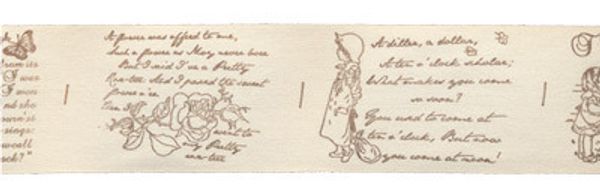 A flower was offerd to me,
Such a flower as May never bore
But I said I've a Pretty
Rose-tree And I passed the sweet
flower o'er
Then I
went to
my Pretty
rose-tree
A diller, a dollar,
A ten o'clock scholar;
What makes you come
so soon?
You used to come at
ten o'clock, But now
you come at noon!